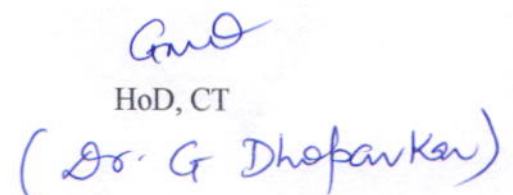 HoD, CT
(Dr. G Dhopavkar)